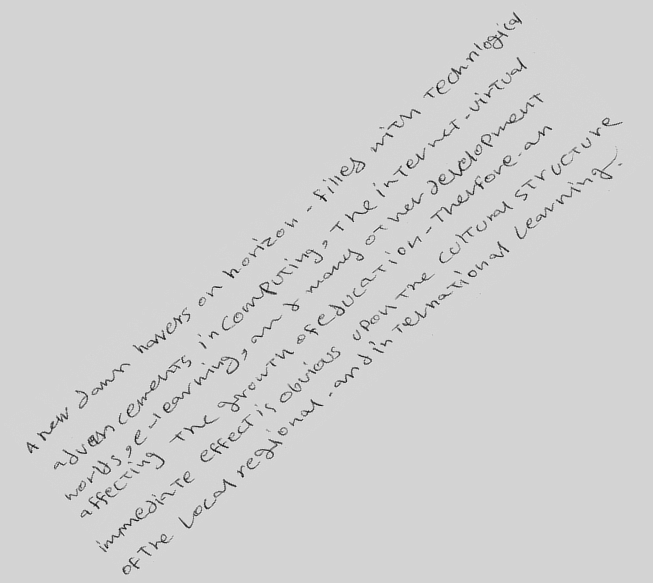 A new dawn havers on horizon - filled with technlogical
advancements in computing, The internet - virtual
worlds, e-learning, and many other development
affecting The growth of education - Therfore - an
immediate effect is obvious upon The cultural structure
of The Local regional - and international Learning.